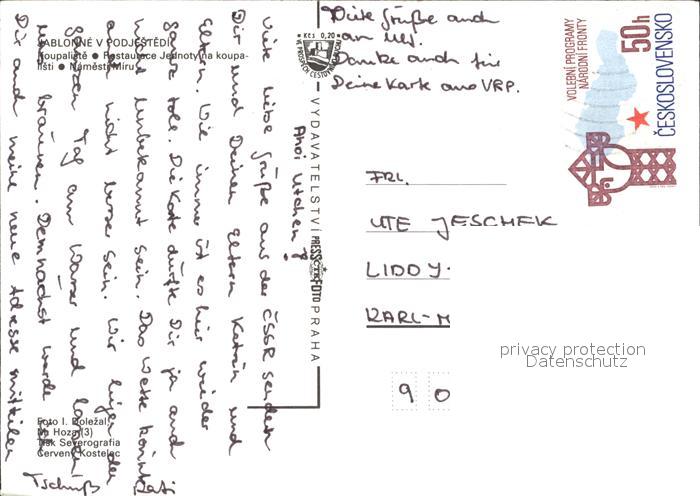 JABLONNÉ V PODJEŠTĚDÍ
Koupaliště ● Restaurace Jednoty na koupa-
lišti ● Náměstí Míru
Ahoi Utchen!
Viele liebe Grüße aus der ČSSR senden
Dir und Deinen Eltern Katrin und
Eltern. Wie immer ist es hier wieder
ganz toll. Die Karte dürfte Dir ja auch
nicht unbekannt sein. Das Wetter könnte
auch nicht besser sein. Wir liegen den
ganzen Tag am Wasser und lassen
uns bräunen. Demnächst werde ich
Dir auch meine neue Adresse mitteilen
Tschüß Kati
Foto I. Doležal
Na Hoza (3)
Tisk Severografia
Červený Kostelec
VYDAVATELSTVÍ PRESSFOTO PRAHA
Kčs 0,20
Bitte Grüße auch
an Uli.
Danke auch für
Deine Karte aus VRP.
VOLEBNÍ PROGRAMY
NÁRODNÍ FRONTY
50h
ČESKOSLOVENSKO
FRL.
UTE JESCHEK
LIDDY-
KARL-M
90
privacy protection
Datenschutz